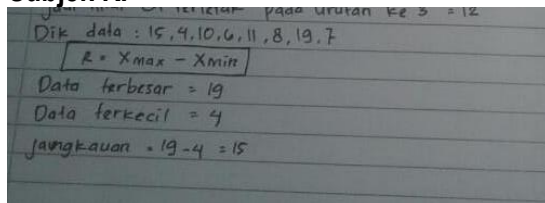 pada urutan ke 3 = 12
Dik data : 15, 4, 10, 6, 11, 8, 19, 7
R = Xmax - Xmin
Data terbesar = 19
Data terkecil = 4
jaungkauan = 19 - 4 = 15